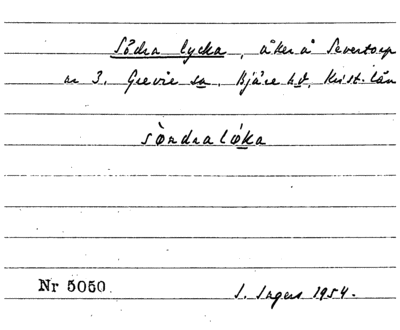 Södra lycka, åker å Severtorp
nr 3. Grevie sn. Bjäre hd. Krist. län
sòndraló̱ka
Nr 5050
J. Ingers 1954.